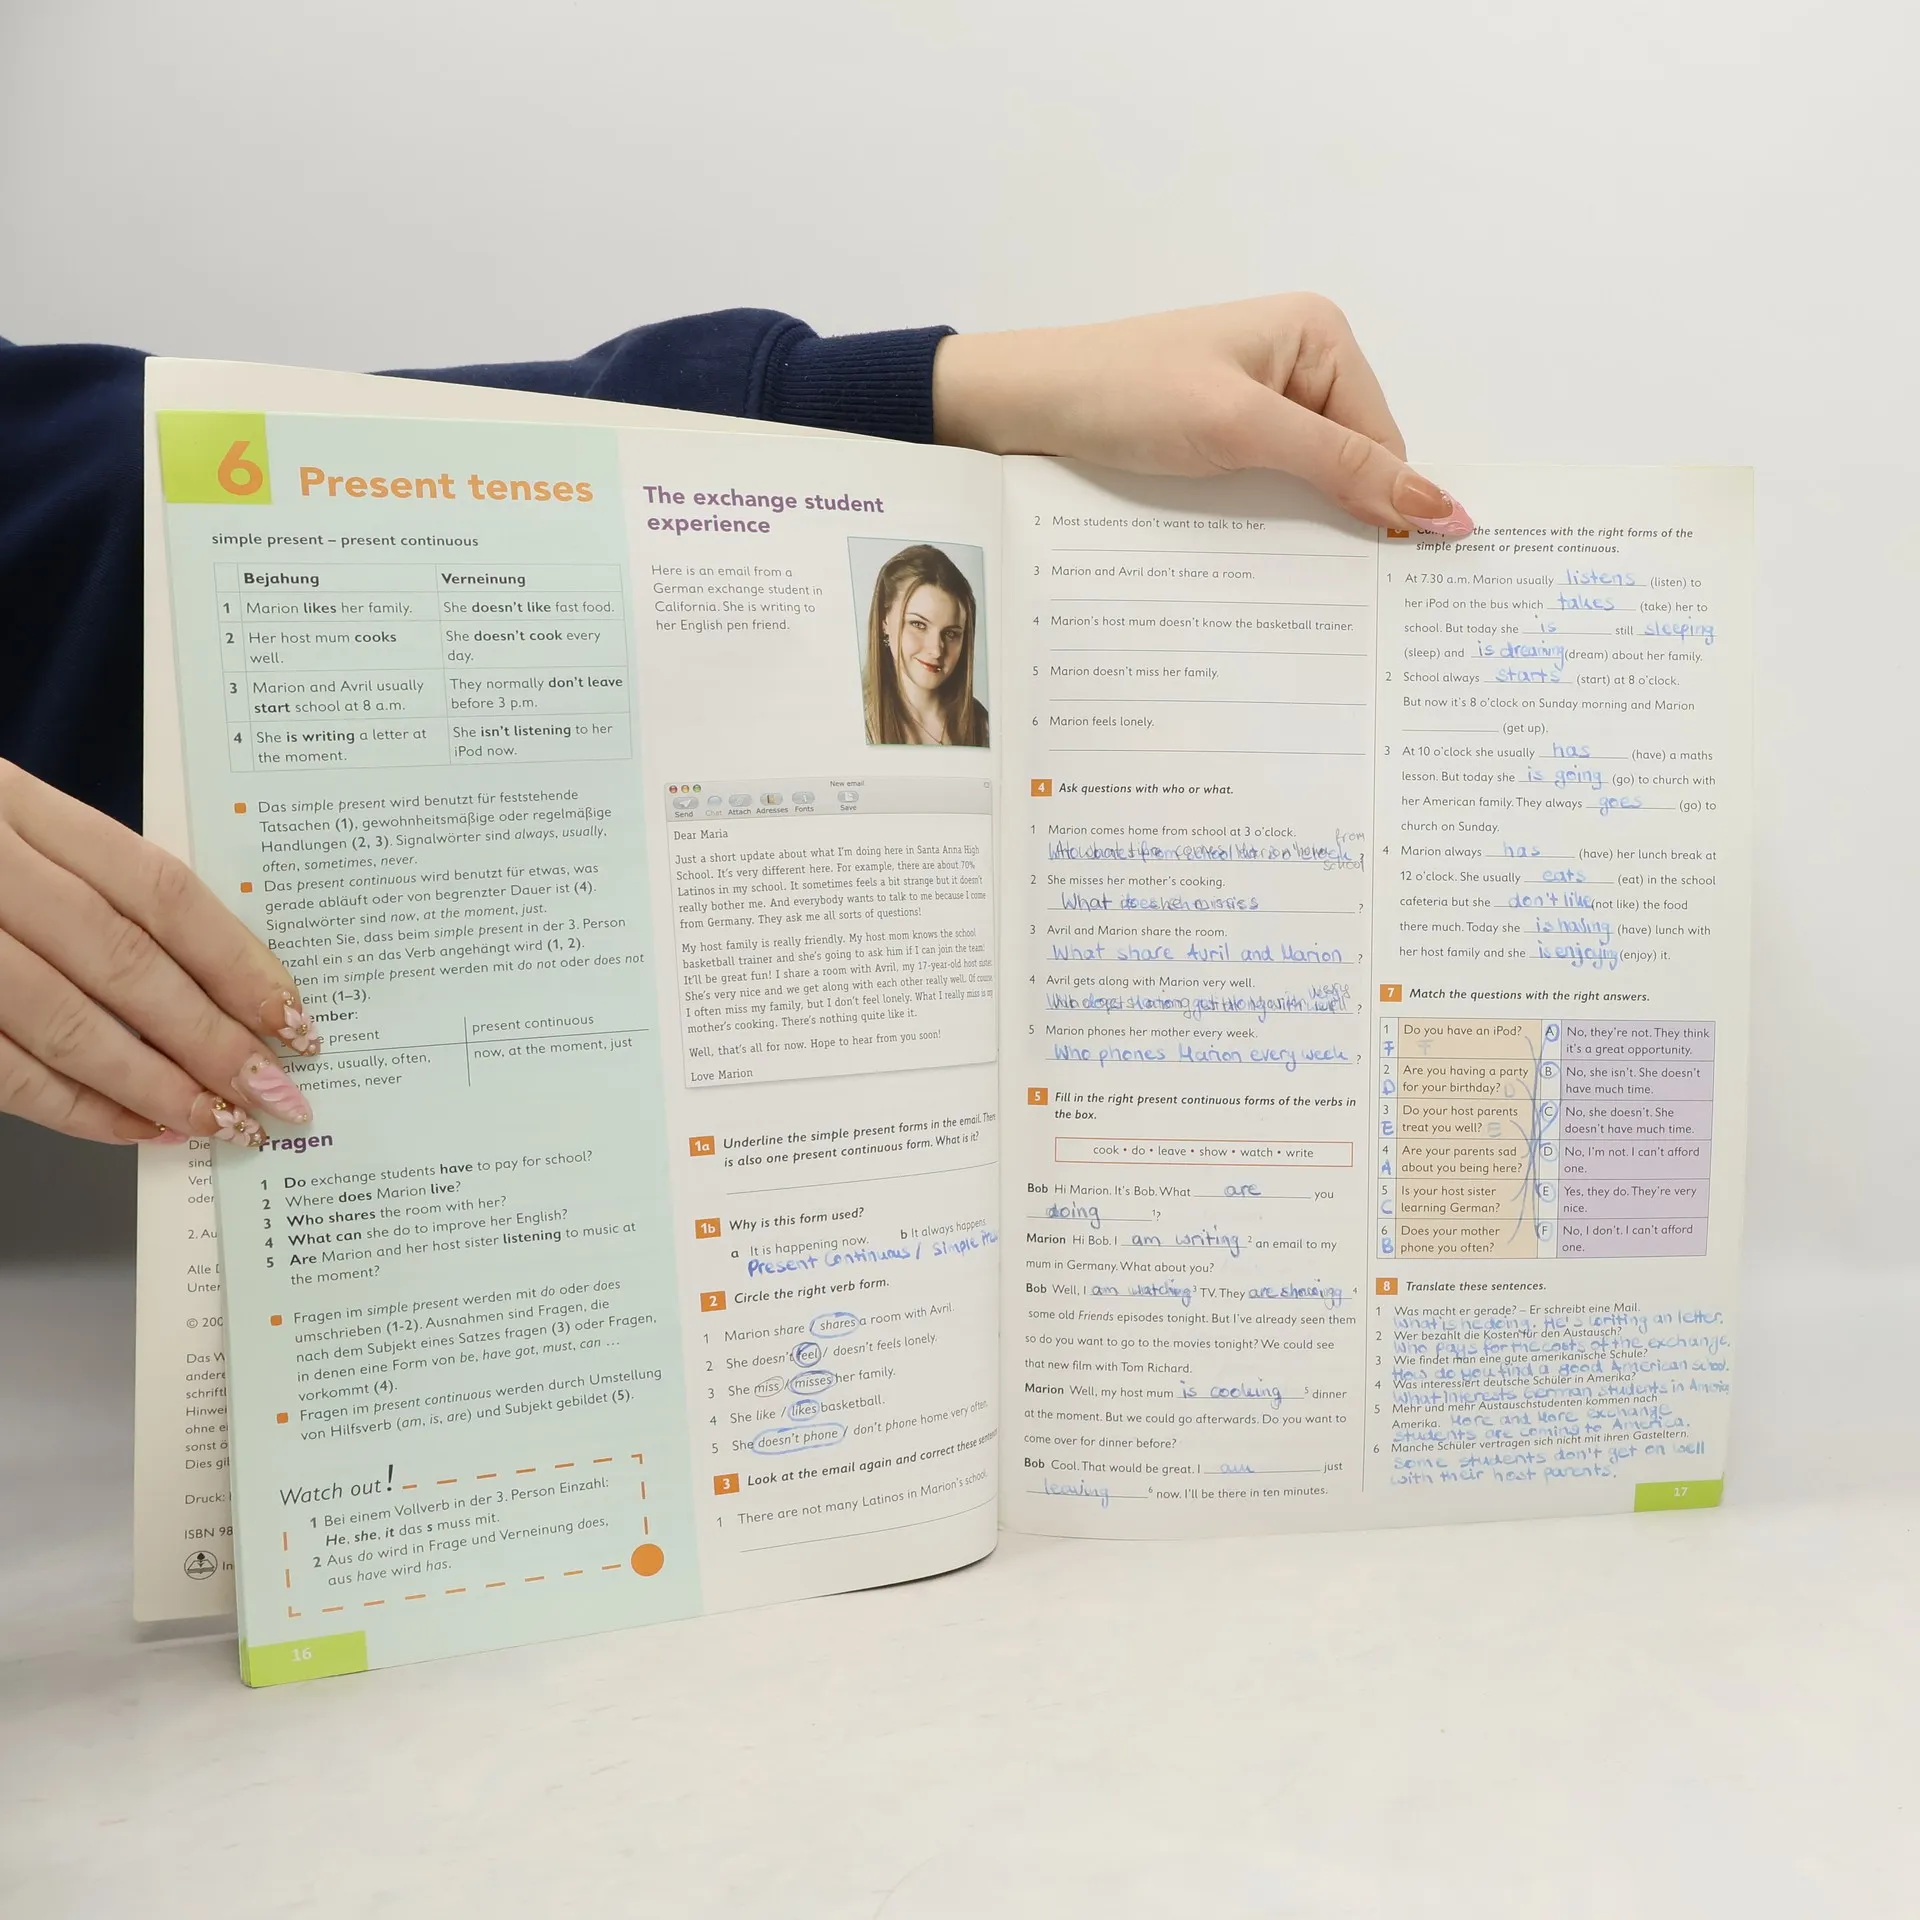 6
Present tenses
simple present – present continuous
Bejahung Verneinung
1 Marion likes her family. She doesn't like fast food.
2 Her host mum cooks well. She doesn't cook every day.
3 Marion and Avril usually start school at 8 a.m. They normally don't leave before 3 p.m.
4 She is writing a letter at the moment. She isn't listening to her iPod now.
Das simple present wird benutzt für feststehende
Tatsachen (1), gewohnheitsmäßige oder regelmäßige
Handlungen (2, 3). Signalwörter sind always, usually,
often, sometimes, never.
Das present continuous wird benutzt für etwas, was
gerade abläuft oder von begrenzter Dauer ist (4).
Signalwörter sind now, at the moment, just.
Beachten Sie, dass beim simple present in der 3. Person
nzahl ein s an das Verb angehängt wird (1, 2).
ben im simple present werden mit do not oder does not
eint (1–3).
ember:
e present present continuous
always, usually, often, now, at the moment, just
metimes, never
Fragen
1 Do exchange students have to pay for school?
2 Where does Marion live?
3 Who shares the room with her?
4 What can she do to improve her English?
5 Are Marion and her host sister listening to music at
the moment?
Fragen im simple present werden mit do oder does
umschrieben (1-2). Ausnahmen sind Fragen, die
nach dem Subjekt eines Satzes fragen (3) oder Fragen,
in denen eine Form von be, have got, must, can ...
vorkommt (4).
Fragen im present continuous werden durch Umstellung
von Hilfsverb (am, is, are) und Subjekt gebildet (5).
Watch out!
1 Bei einem Vollverb in der 3. Person Einzahl:
He, she, it das s muss mit.
2 Aus do wird in Frage und Verneinung does,
aus have wird has.
16
Die
sind
Verl
oder
2. Au
Alle
Unter
© 200
Das W
andere
schriftl
Hinwei
ohne e
sonst ö
Dies gil
Druck:
ISBN 98
In
The exchange student
experience
Here is an email from a
German exchange student in
California. She is writing to
her English pen friend.
New email
Send Chat Attach Adresses Fonts Save
Dear Maria
Just a short update about what I'm doing here in Santa Anna High
School. It's very different here. For example, there are about 70%
Latinos in my school. It sometimes feels a bit strange but it doesn't
really bother me. And everybody wants to talk to me because I come
from Germany. They ask me all sorts of questions!
My host family is really friendly. My host mom knows the school
basketball trainer and she's going to ask him if I can join the team.
It'll be great fun! I share a room with Avril, my 17-year-old host sister.
She's very nice and we get along with each other really well. Of course
I often miss my family, but I don't feel lonely. What I really miss is my
mother's cooking. There's nothing quite like it.
Well, that's all for now. Hope to hear from you soon!
Love Marion
1a Underline the simple present forms in the email. There
is also one present continuous form. What is it?
1b Why is this form used?
a It is happening now. b It always happens.
Present Continuous / Simple
2 Circle the right verb form.
1 Marion share / shares a room with Avril.
2 She doesn't feel / doesn't feels lonely.
3 She miss / misses her family.
4 She like / likes basketball.
5 She doesn't phone / don't phone home very often.
3 Look at the email again and correct these sentences
1 There are not many Latinos in Marion's school.
2 Most students don't want to talk to her.
3 Marion and Avril don't share a room.
4 Marion's host mum doesn't know the basketball trainer.
5 Marion doesn't miss her family.
6 Marion feels lonely.
4 Ask questions with who or what.
1 Marion comes home from school at 3 o'clock.
from
school ?
2 She misses her mother's cooking.
What ?
3 Avril and Marion share the room.
What share Avril and Marion ?
4 Avril gets along with Marion very well.
?
5 Marion phones her mother every week.
Who phones Marion every week ?
5 Fill in the right present continuous forms of the verbs in
the box.
cook • do • leave • show • watch • write
Bob Hi Marion. It's Bob. What are you
doing 1?
Marion Hi Bob. I am writing 2 an email to my
mum in Germany. What about you?
Bob Well, I am watching 3 TV. They are showing 4
some old Friends episodes tonight. But I've already seen them
so do you want to go to the movies tonight? We could see
that new film with Tom Richard.
Marion Well, my host mum is cooking 5 dinner
at the moment. But we could go afterwards. Do you want to
come over for dinner before?
Bob Cool. That would be great. I am just
leaving 6 now. I'll be there in ten minutes.
the sentences with the right forms of the
simple present or present continuous.
1 At 7.30 a.m. Marion usually listens (listen) to
her iPod on the bus which takes (take) her to
school. But today she is still sleeping
(sleep) and is dreaming (dream) about her family.
2 School always starts (start) at 8 o'clock.
But now it's 8 o'clock on Sunday morning and Marion
(get up).
3 At 10 o'clock she usually has (have) a maths
lesson. But today she is going (go) to church with
her American family. They always goes (go) to
church on Sunday.
4 Marion always has (have) her lunch break at
12 o'clock. She usually eats (eat) in the school
cafeteria but she don't like (not like) the food
there much. Today she is having (have) lunch with
her host family and she is enjoying (enjoy) it.
7 Match the questions with the right answers.
1 F Do you have an iPod? F A No, they're not. They think it's a great opportunity.
2 D Are you having a party for your birthday? D B No, she isn't. She doesn't have much time.
3 E Do your host parents treat you well? E C No, she doesn't. She doesn't have much time.
4 A Are your parents sad about you being here? D No, I'm not. I can't afford one.
5 C Is your host sister learning German? E Yes, they do. They're very nice.
6 B Does your mother phone you often? F No, I don't. I can't afford one.
8 Translate these sentences.
1 Was macht er gerade? – Er schreibt eine Mail.
What is he doing. He's writing an letter.
2 Wer bezahlt die Kosten für den Austausch?
Who pays for the costs of the exchange.
3 Wie findet man eine gute amerikanische Schule?
How do you find a good American school.
4 Was interessiert deutsche Schüler in Amerika?
What interests German students in America
5 Mehr und mehr Austauschstudenten kommen nach
Amerika. More and More exchange
students are coming to America.
6 Manche Schüler vertragen sich nicht mit ihren Gasteltern.
Some students don't get on well
with their host parents.
17